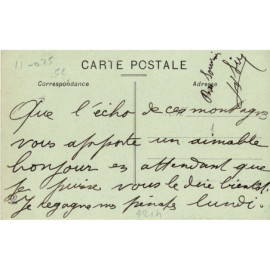 11-035
CARTE POSTALE
Correspondance
Adresse
Bon souvenir
Que l'écho de ces montagnes
vous apporte un aimable
bonjour en attendant que
je puisse vous le dire bientôt.
Je regagne mes pénates lundi.